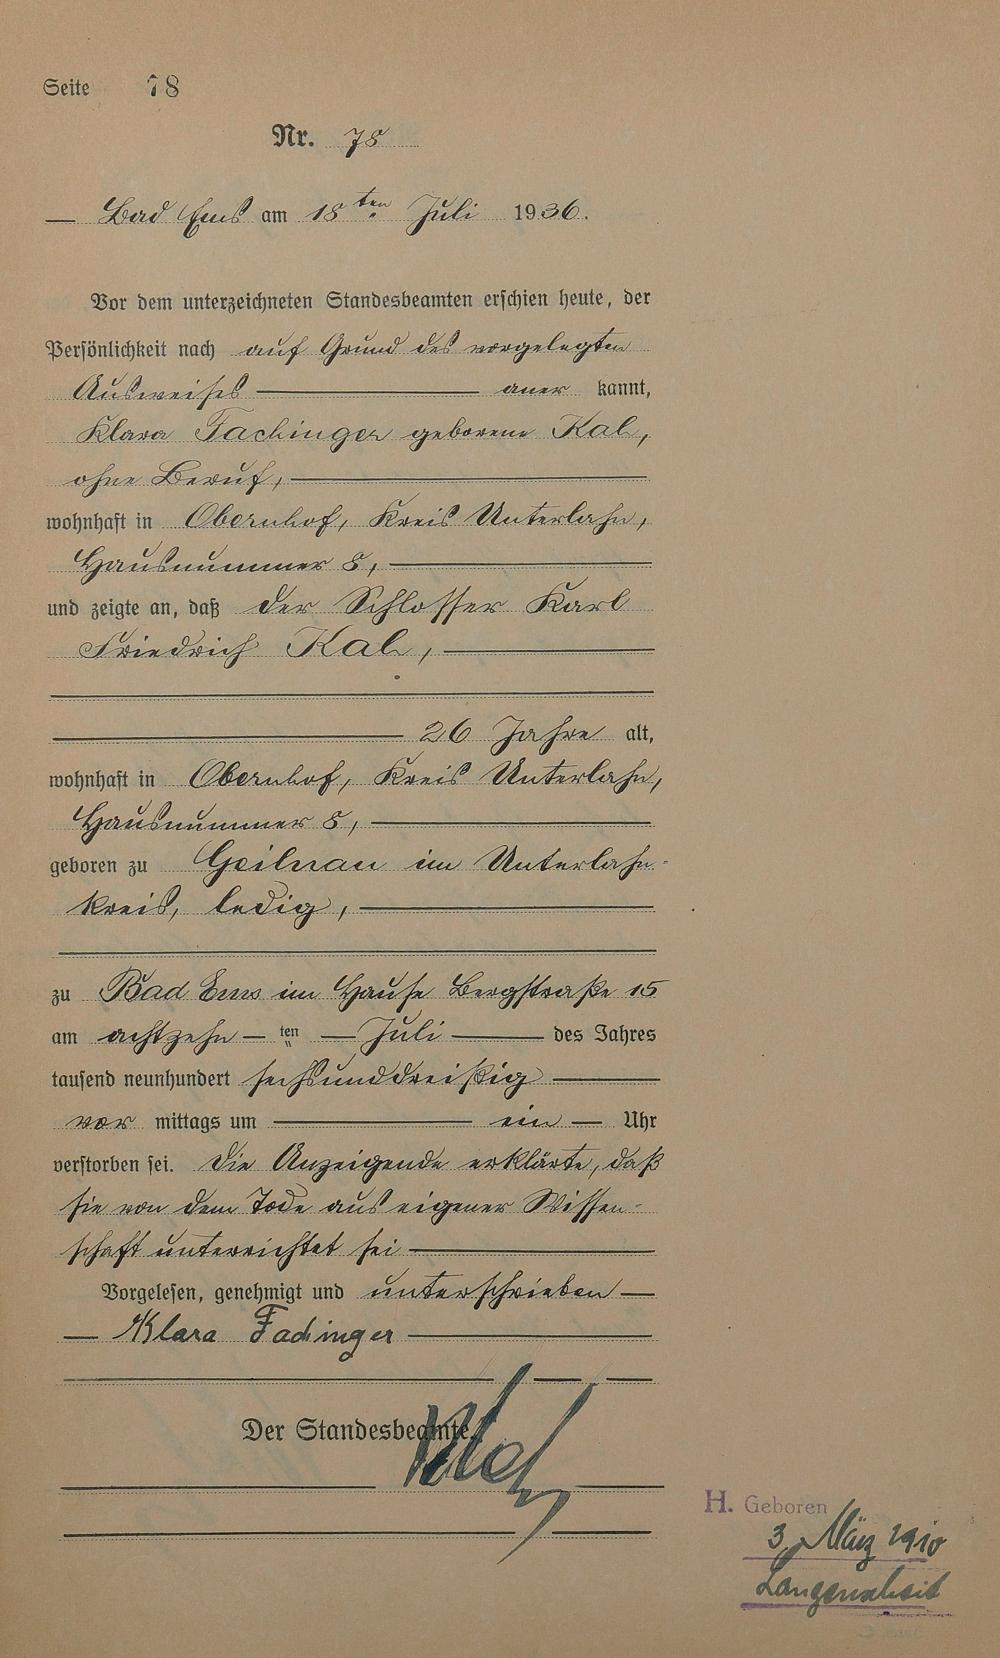 Seite 78
Nr. 78
— Bad Ems am 18ten Juli 1936.
Vor dem unterzeichneten Standesbeamten erschien heute, der
Persönlichkeit nach auf Grund des vorgelegten
Ausweises — aner kannt,
Klara Fachinger geborene Kal,
ohne Beruf, —
wohnhaft in Obernhof, Kreis Unterlahn,
Hausnummer 8, —
und zeigte an, daß der Schlosser Karl
Friedrich Kal, —
— 26 Jahre alt,
wohnhaft in Obernhof, Kreis Unterlahn,
Hausnummer 8, —
geboren zu Geilnau im Unterlahn-
kreis, ledig, —
zu Bad Ems im Hause Bergstraße 15
am achtzehn — ten — Juli — des Jahres
tausend neunhundert sechsunddreißig —
vor mittags um — ein — Uhr
verstorben sei. Die Anzeigende erklärte, daß
sie von dem Tode aus eigener Wissen-
schaft unterrichtet sei —
Vorgelesen, genehmigt und unterschrieben —
— Klara Fachinger —
Der Standesbeamte.
H. Geboren
3. März 1910